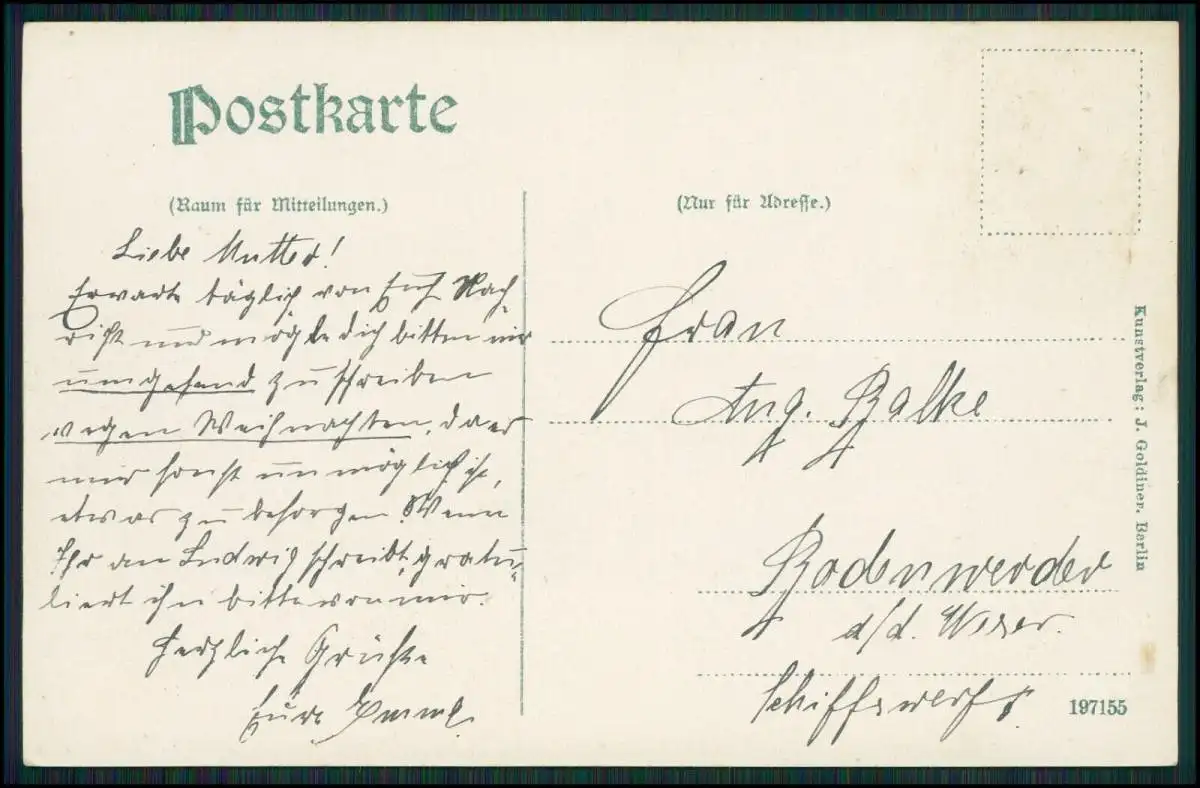 Postkarte
(Raum für Mitteilungen.)
(Nur für Adresse.)
Liebe Mutter!
Erwarte täglich von Euch Nach-
richt und möchte dich bitten mir
umgehend zu schreiben
wegen Weihnachten, da es
mir sonst unmöglich ist,
etwas zu besorgen. Wenn
Ihr an Ludwig schreibt, gratu-
liert ihn bitte von mir.
Herzliche Grüße
Eure
Frau
Aug. Balke
Bodenwerder
a/d. Weser.
Schiffswerft
197155
Kunstverlag: J. Goldiner, Berlin